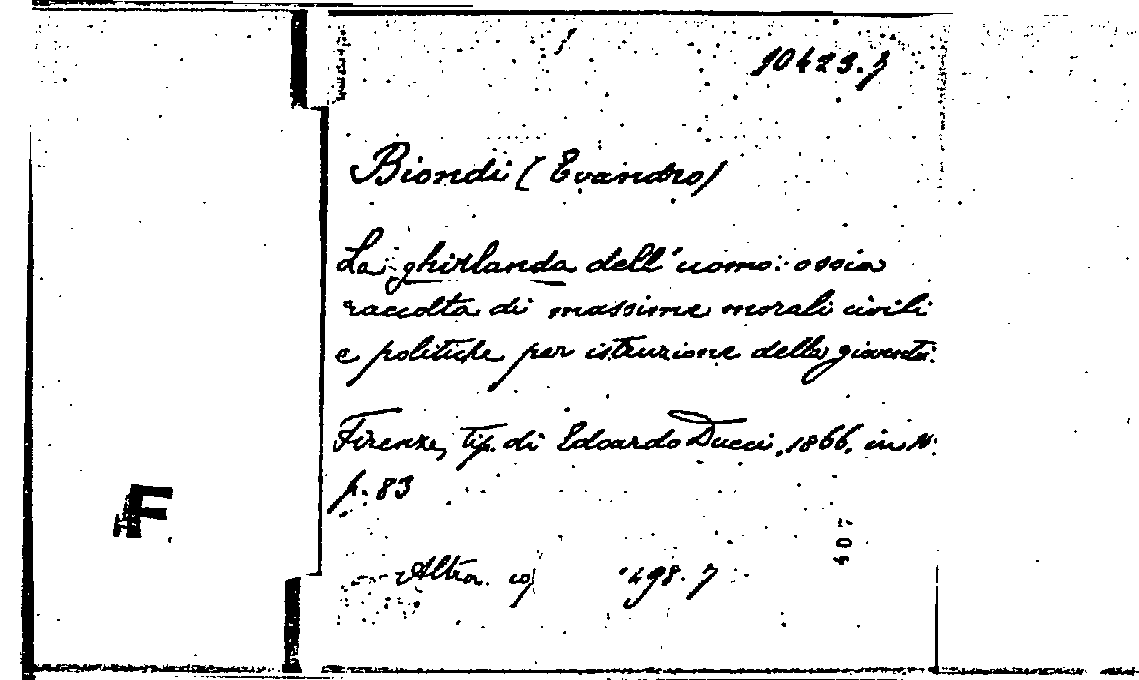 10423.7
Biondi (Evandro)
La ghirlanda dell'uomo: ossia
raccolta di massime morali civili
e politiche per istruzione della gioventù.
Firenze, tip. di Edoardo Ducci, 1866. in
p. 83
Altra 498.7
407
F